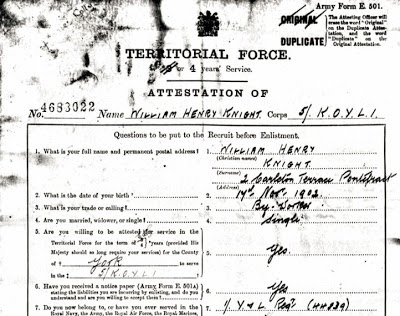 Army Form E. 501.
ORIGINAL
DUPLICATE
The Attesting Officer will erase the word "Original" on the Duplicate Attestation, and the word "Duplicate" on the Original Attestation.
TERRITORIAL FORCE.
4 years' Service.
ATTESTATION OF
No. 4683022 Name WILLIAM HENRY KNIGHT. Corps 5/ K.O.Y.L.I.
Questions to be put to the Recruit before Enlistment.
1. What is your full name and permanent postal address?
1. WILLIAM HENRY
(Christian names)
KNIGHT.
(Surname)
2 Carleton Terrace Pontefract
(Address)
2. What is the date of your birth?
2. 14th Novr. 1902.
3. What is your trade or calling?
3. Worker
4. Are you married, widower, or single?
4. Single.
5. Are you willing to be attested for service in the
Territorial Force for the term of years (provided His
Majesty should so long require your services) for the County
of York to serve
in the 5/K.O.Y.L.I
5. Yes.
6. Have you received a notice paper (Army Form E. 501a)
stating the liabilities you are incurring by enlisting, and do you
understand and are you willing to accept them?
6. Yes
7. Do you now belong to, or have you ever served in the
Royal Navy, the Army, the Royal Air Force, the Royal Marines,
7. Y & L Regt